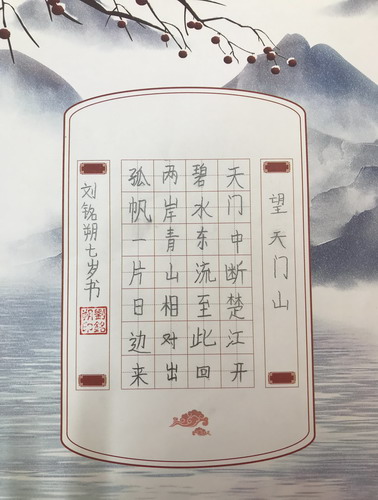 望天门山
天门中断楚江开
碧水东流至此回
两岸青山相对出
孤帆一片日边来
刘铭朔七岁书